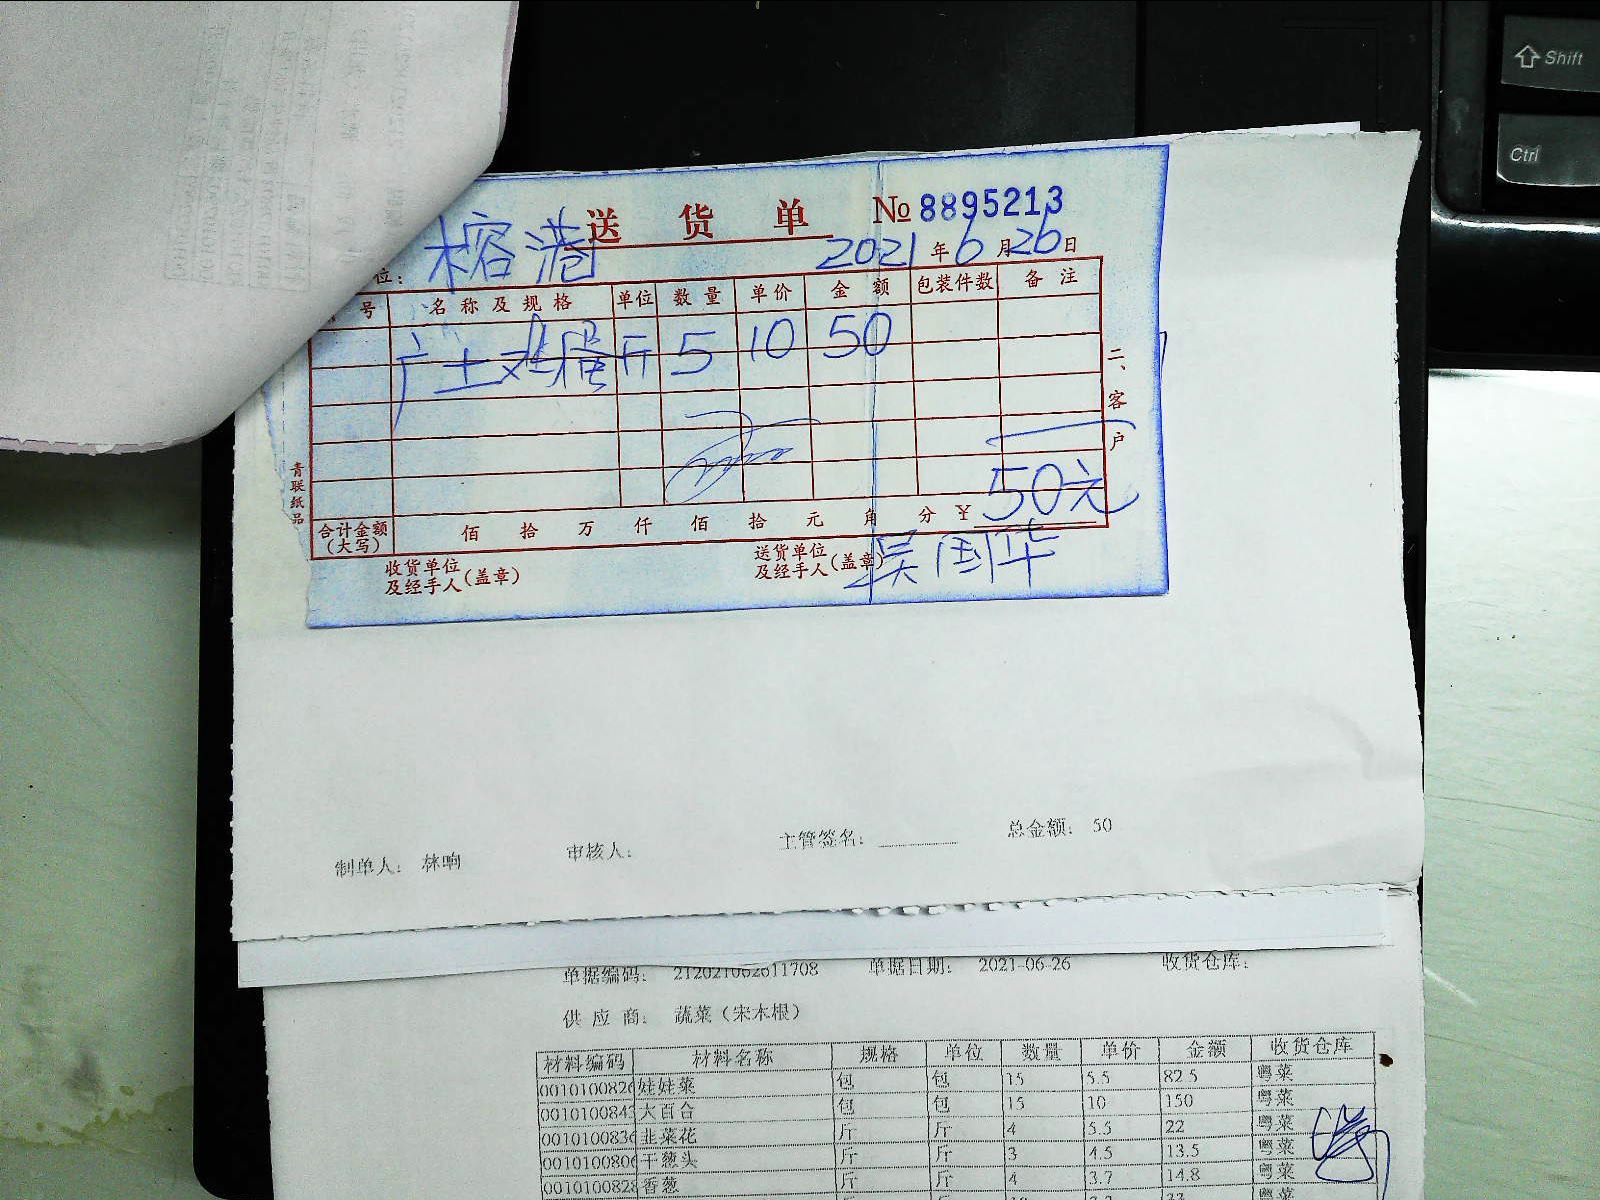 Shift
Ctrl
送货单 № 8895213
位：榕港 2021年6月26日
号 名称及规格 单位 数量 单价 金额 包装件数 备注
广土鸡蛋 斤 5 10 50
二、客户
青联纸品
50元
合计金额（大写） 佰 拾 万 仟 佰 拾 元 角 分 ￥
收货单位及经手人（盖章） 送货单位及经手人（盖章） 吴国华
制单人： 林响 审核人： 主管签名： 总金额： 50
单据编码： 212021062611708 单据日期： 2021-06-26 收货仓库：
供应商： 蔬菜（宋木根）
材料编码 材料名称 规格 单位 数量 单价 金额 收货仓库
0010100826 娃娃菜 包 包 15 5.5 82.5 粤菜
0010100843 大百合 包 包 15 10 150 粤菜
0010100836 韭菜花 斤 斤 4 5.5 22 粤菜
0010100806 干葱头 斤 斤 3 4.5 13.5 粤菜
0010100828 香葱 斤 斤 4 3.7 14.8 粤菜
粤菜